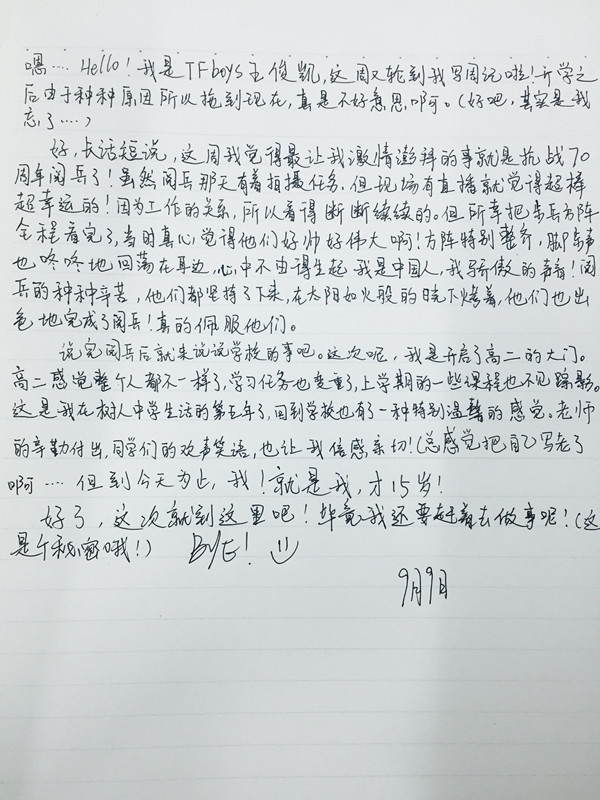 嗯.... Hello！我是TFboys王俊凯，这周又轮到我写周记啦！开学之
后由于种种原因所以拖到现在，真是不好意思啊。（好吧，其实是我
忘了....）
好，长话短说，这周我觉得最让我激情澎拜的事就是抗战70
周年阅兵了！虽然阅兵那天有着拍摄任务，但现场有直播就觉得超棒
超幸运的！因为工作的关系，所以看得断断续续的。但所幸把步兵方阵
全程看完了，当时真心觉得他们好帅好伟大啊！方阵特别整齐，脚步声
也咚咚地回荡在耳边，心中不由得生起我是中国人，我骄傲的声音！阅
兵的种种辛苦，他们都坚持了下来，在太阳如火般的日光下烤着，他们也出
色地完成了阅兵！真的佩服他们。
说完阅兵后就来说说学校的事吧。这次呢，我是开启了高二的大门。
高二感觉整个人都不一样了，学习任务也变重了，上学期的一些课程也不见踪影。
这是我在树人中学生活的第五年了，回到学校也有了一种特别温馨的感觉。老师
的辛勤付出，同学们的欢声笑语，也让我倍感亲切！（总感觉把自己写老了
啊.... 但到今天为止，我！就是我，才15岁！
好了，这次就到这里吧！毕竟我还要赶着去做事呢！（这
是个秘密哦！） BYE！
9月9日